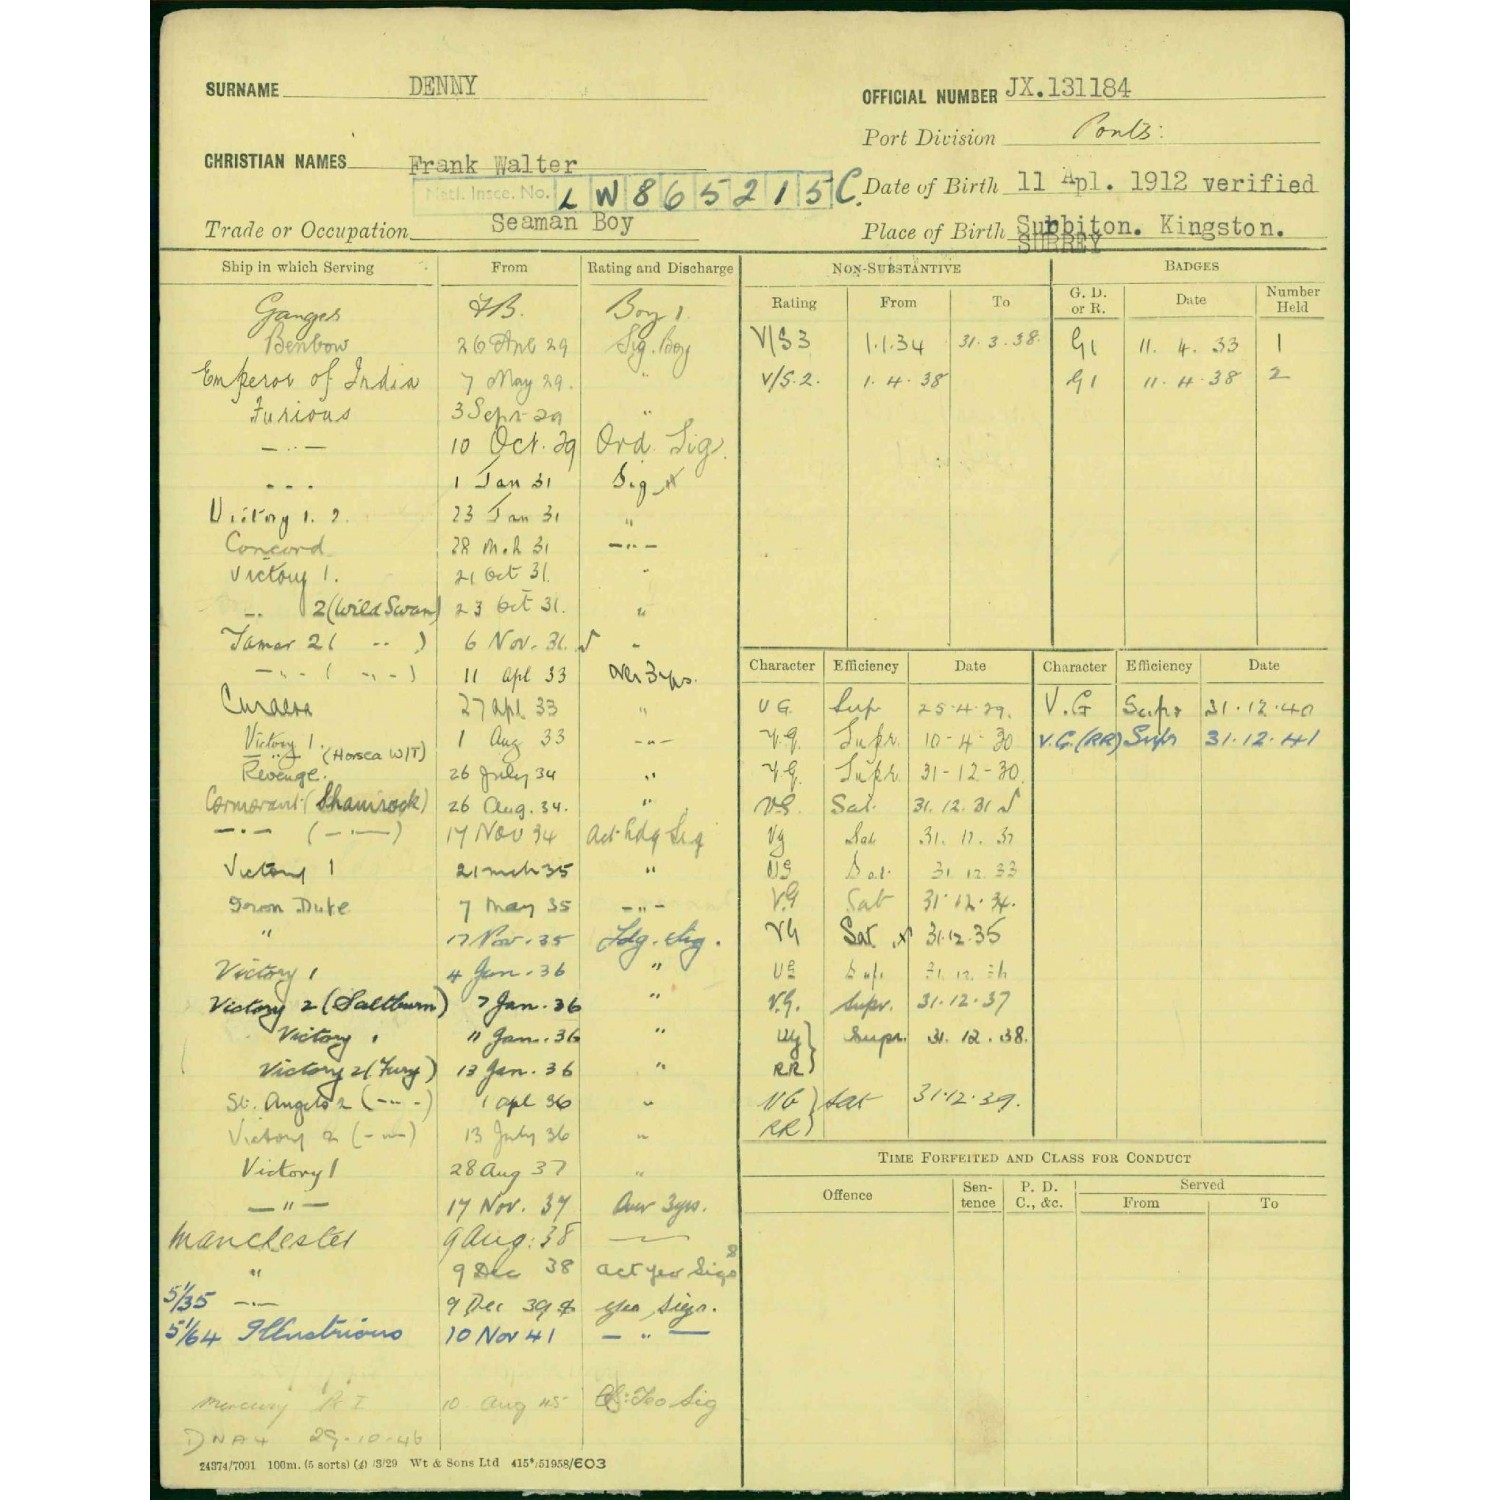 SURNAME DENNY
OFFICIAL NUMBER JX.131184
Port Division
CHRISTIAN NAMES Frank Walter
Natl. Insce. No. LW865215C
Date of Birth 11 Apl. 1912 verified
Trade or Occupation Seaman Boy
Place of Birth Surbiton. Kingston.
SURREY
Ship in which Serving From Rating and Discharge
Ganges FB. Boy 1.
Benbow 26 29 Sig. Boy
Emperor of India 7 May 29. "
Furious 3 Sept 29 "
— " — 10 Oct. 29 Ord. Sig.
- - - 1 Jan 31 Sig
Victory 1. 2. 23 Jan 31 "
Concord 28 31 — " —
Victory 1. 21 Oct 31. "
- .. 2 (Wild Swan) 23 Oct 31. "
Tamar 2 ( -- ) 6 Nov. 31. "
— " — ( - " - ) 11 Apl 33 Over 3yrs.
27 Apl 33 "
Victory 1. (Horsea W/T) 1 Aug 33 — " —
Revenge. 26 July 34 "
Cormorant (Shamrock) 26 Aug. 34. "
— " — ( — " — ) 17 Nov 34 Act Ldg Sig
Victory 1 21 Mch 35 "
Iron Duke 7 May 35 — " —
" 17 Nov. 35 Ldg. Sig.
Victory 1 4 Jan. 36 "
Victory 2 (Saltburn) 7 Jan. 36 "
Victory 1 11 Jan. 36 "
Victory 2 (Fury) 13 Jan. 36 "
St. Angelo 2 ( — " — ) 1 Apl 36 "
Victory 2 ( — " — ) 13 July 36 "
Victory 1 28 Aug 37 "
— " — 17 Nov. 37 Over 3yrs.
Manchester 9 Aug: 38 —
" 9 Dec 38 Act Yeo Sigs
51/35 — " — 9 Dec 39 Yeo Sigs.
51/64 Illustrious 10 Nov 41 — " —
Mercury 10 Aug 45 Yeo Sig
29-10-46
24374/7091 100m. (5 sorts) (4) 13/29 Wt & Sons Ltd 415*/51958/603
NON-SUBSTANTIVE
Rating From To
V/S 3 1.1.34 31.3.38.
V/S. 2. 1.4.38
BADGES
G. D. or R. Date Number Held
G1 11. 4. 33 1
G1 11. 4. 38 2
Character Efficiency Date
VG. Sup 25.4.29.
V.G. Supr. 10-4-30
V.G. Supr. 31-12-30.
VG. Sat. 31.12.31
VG Sat 31. 12.
VG Sat. 31.12.33
V.G Sat 31.12.34.
VG Sat. 31.12.35
VG Sup. 31.12.36
V.G. Supr. 31.12.37
VG RR Supr. 31.12.38.
VG RR Sat 31.12.39.
Character Efficiency Date
V.G Supr 31.12.40
V.G.(RR) Supr 31.12.41
TIME FORFEITED AND CLASS FOR CONDUCT
Offence Sentence P. D. C., &c. Served From To